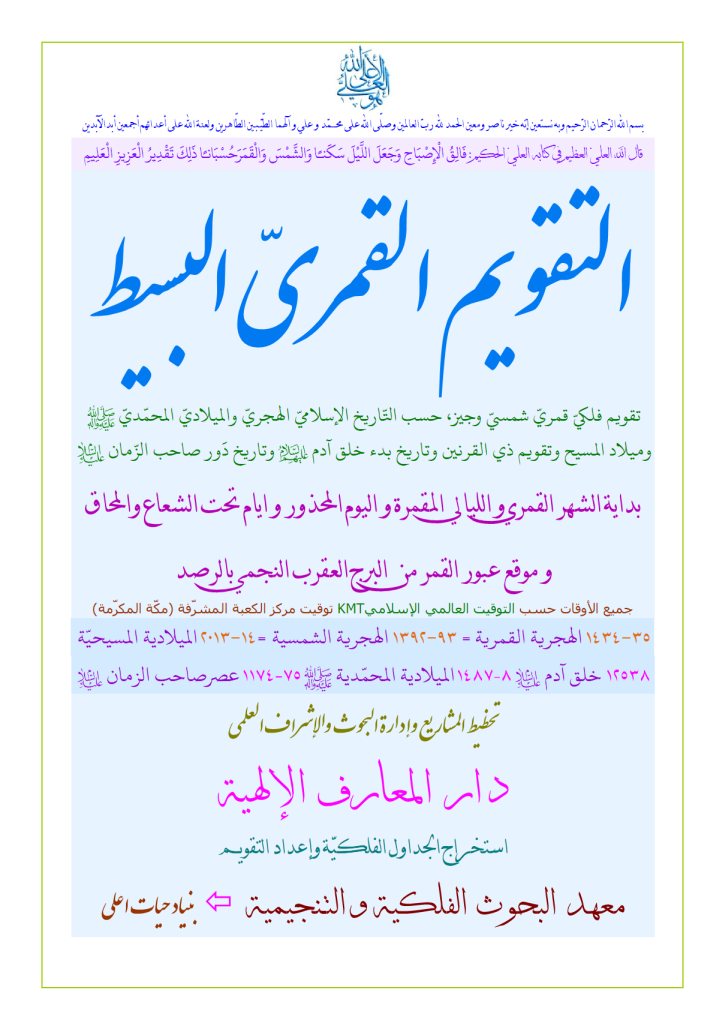 هو العلي الأعلى
بسم الله الرّحمان الرّحيم وبه نستعين إنّه خير ناصر ومعين الحمد لله ربّ العالمين وصلّى الله على محمّد وعلي وآلهما الطّيّبين الطّاهرين ولعنة الله على أعدائهم أجمعين أبد الآبدين
قال الله العليّ العظيم في كتابه العليّ الحكيم: فَالِقُ الْإِصْبَاحِ وَجَعَلَ اللَّيْلَ سَكَنًا وَالشَّمْسَ وَالْقَمَرَ حُسْبَانًا ذَلِكَ تَقْدِيرُ الْعَزِيزِ الْعَلِيمِ
التقويم القمريّ البسيط
تقويم فلكيّ قمريّ شمسيّ وجيز، حسب التّاريخ الإسلاميّ الهجريّ والميلاديّ المحمّديّ ﷺ
وميلاد المسيح وتقويم ذي القرنين وتاريخ بدء خلق آدم عليهم السلام وتاريخ دَور صاحب الزّمان عليه السلام
بداية الشهر القمري والليالي المقمرة واليوم المحذور وايام تحت الشعاع والمحاق
وموقع عبور القمر من البرج العقرب النجمي بالرصد
جميع الأوقات حسب التوقيت العالمي الإسلامي KMT توقيت مركز الكعبة المشرّفة (مكّة المكرّمة)
۱٤۳٤-۳٥ الهجرية القمرية = ۱۳۹۲-۹۳ الهجرية الشمسية = ۲۰۱۳-۱٤ الميلادية المسيحيّة
۱۲٥۳۸ خلق آدم عليه السلام ۱٤۸۷-۸ الميلادية المحمّدية ﷺ ۱۱۷٤-۷٥ عصر صاحب الزمان عليه السلام
تخطيط المشاريع وإدارة البحوث والإشراف العلمي
دار المعارف الإلهية
استخراج الجداول الفلكيّة وإعداد التقويم
معهد البحوث الفلكية والتنجيمية ⇦ بنیاد حیات اعلی